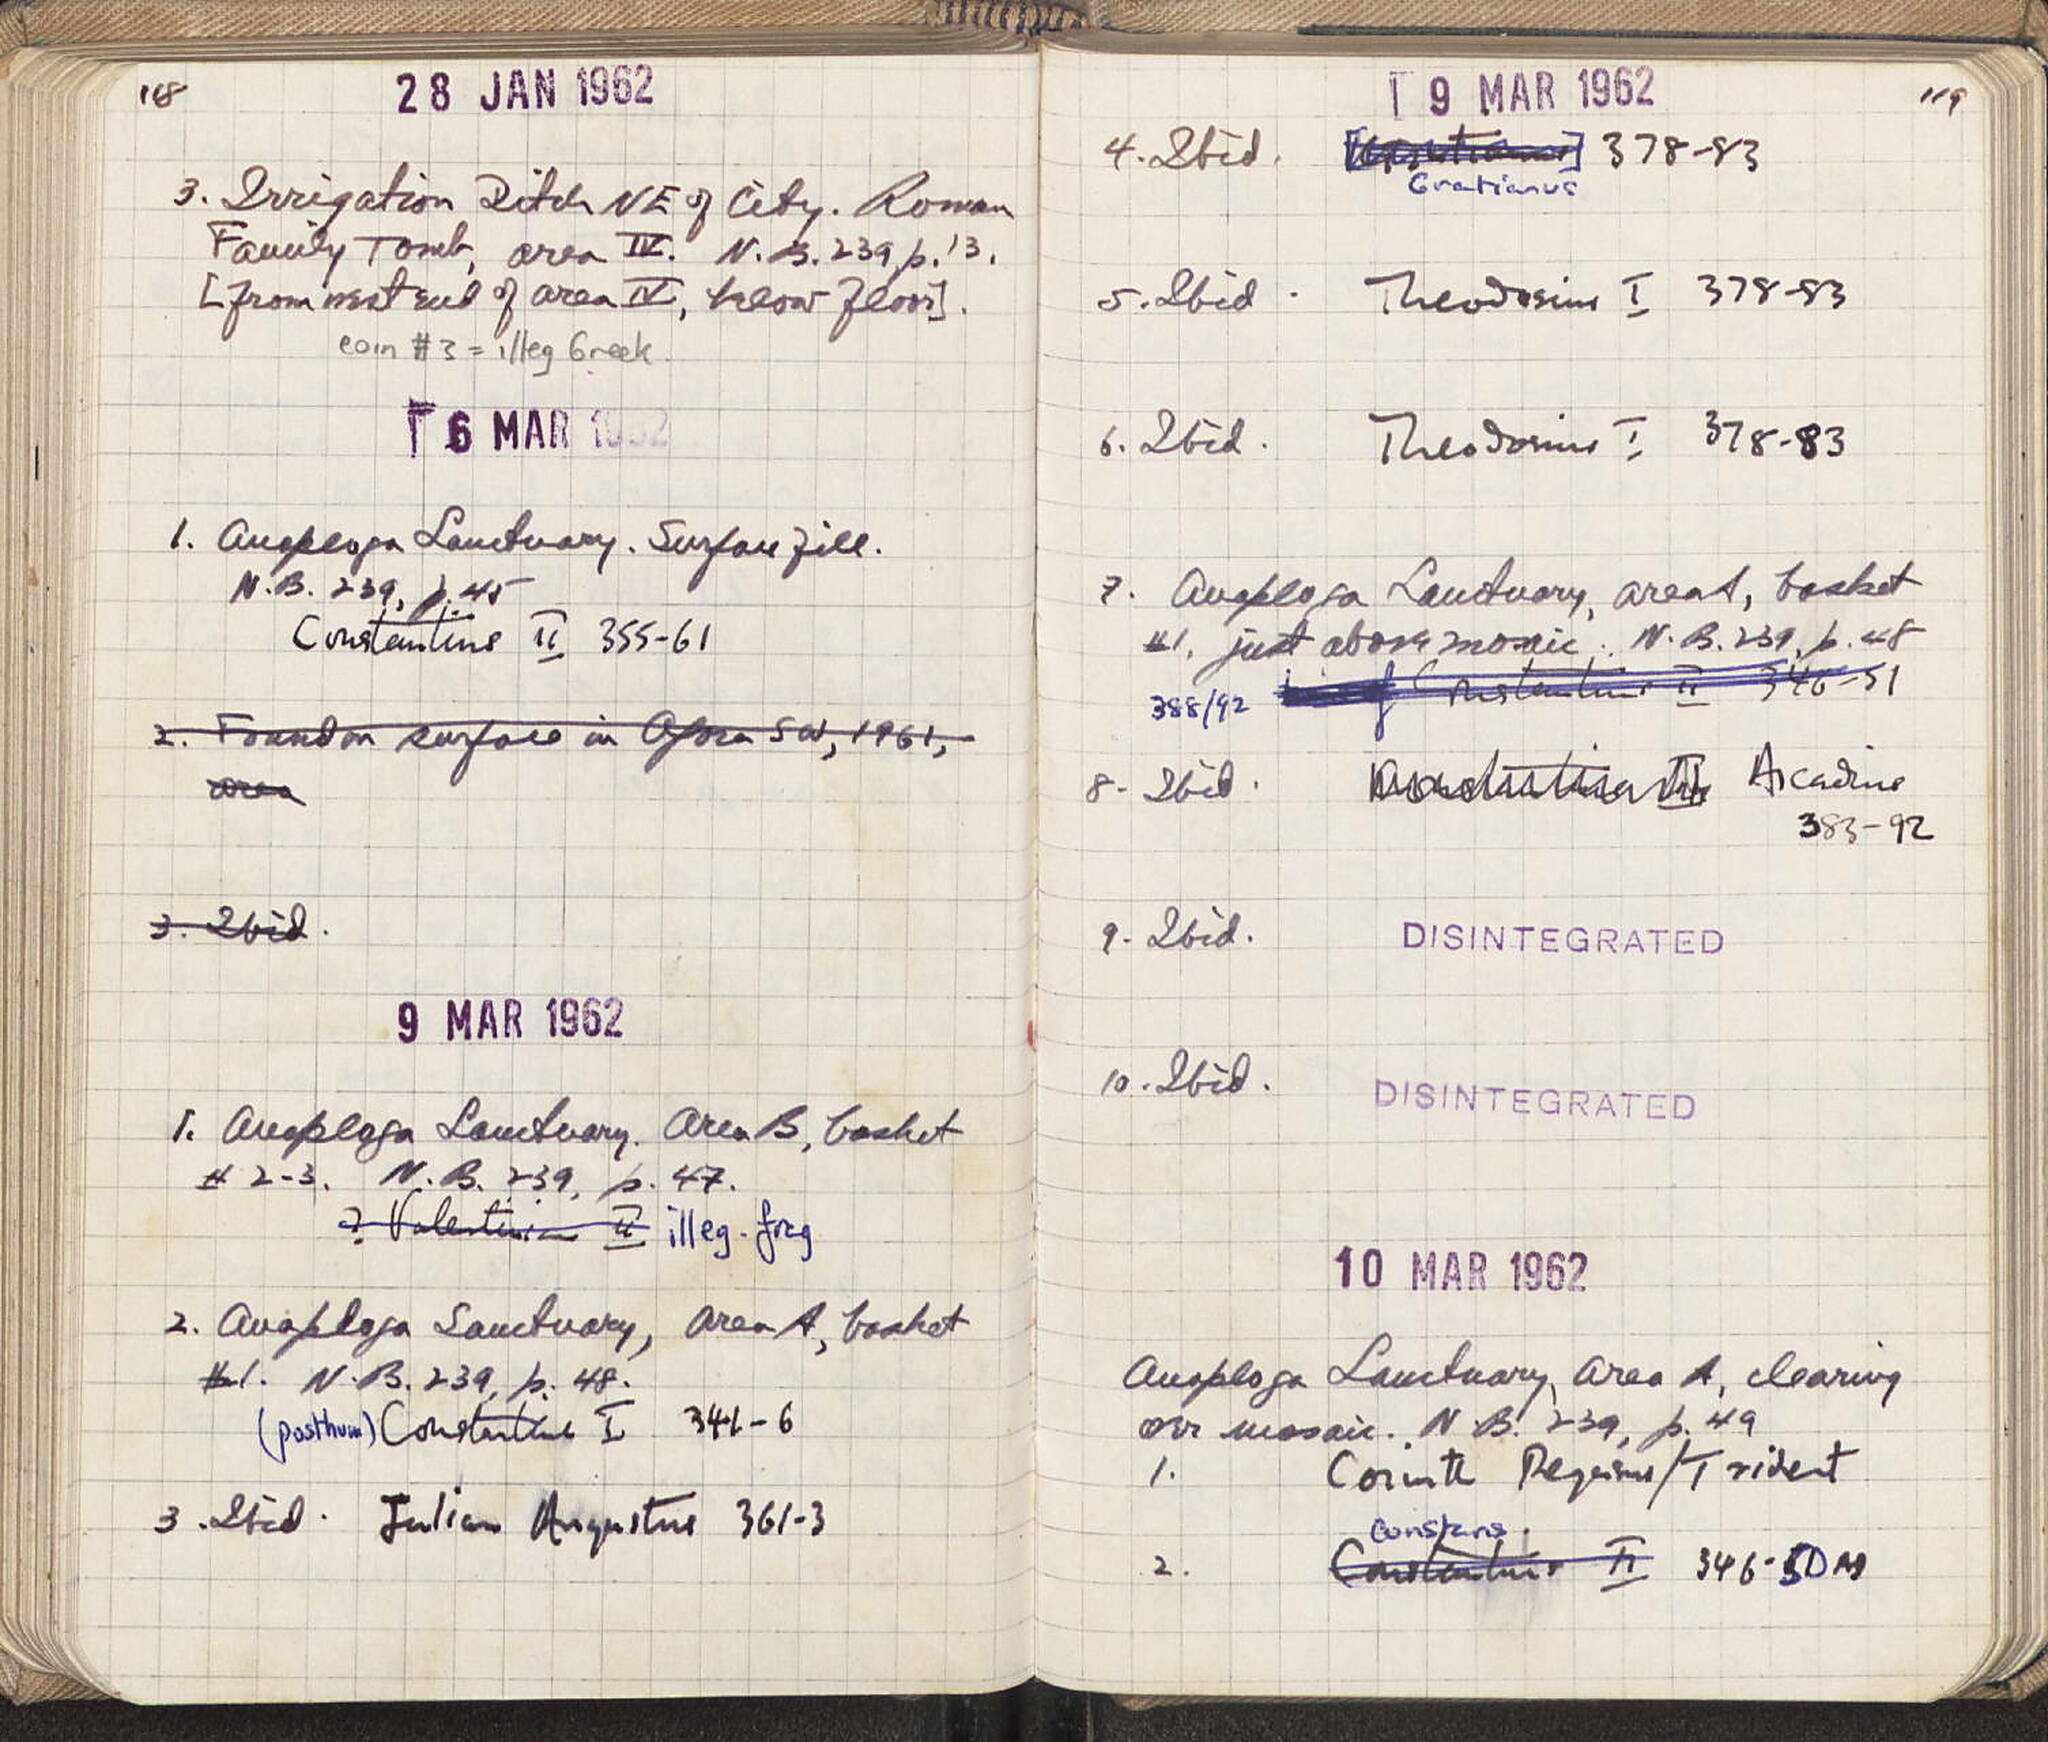 118
28 JAN 1962
3. Irrigation Ditch NE of City. Roman
Family Tomb, area IV. N.B. 239, p. 13.
[from west end of area IV, below floor].
coin #3 = illeg Greek
6 MAR 1962
1. Anaploga Sanctuary. Surface fill.
N.B. 239, p. 45
Constantius II 355-61
2. Found on surface in Agora SW, 1961,
area
3. Ibid.
9 MAR 1962
1. Anaploga Sanctuary. Area B, basket
#2-3. N.B. 239, p. 47.
? Valentinian II illeg. frag
2. Anaploga Sanctuary, area A, basket
#1. N.B. 239, p. 48.
(posthum) Constantine I 341-6
3. Ibid. Julian Augustus 361-3
119
9 MAR 1962
4. Ibid. 378-83
Gratianus
5. Ibid. Theodosius I 378-83
6. Ibid. Theodosius I 378-83
7. Anaploga Sanctuary, area A, basket
#1, just above mosaic. N.B. 239, p. 48
388/92 Constantius II 346-51
8. Ibid. Arcadius
383-92
9. Ibid. DISINTEGRATED
10. Ibid. DISINTEGRATED
10 MAR 1962
Anaploga Sanctuary, area A, clearing
over mosaic. N.B. 239, p. 49
1. Corinth Pegasus/Trident
Constans
2. Constantius II 346-50 AD